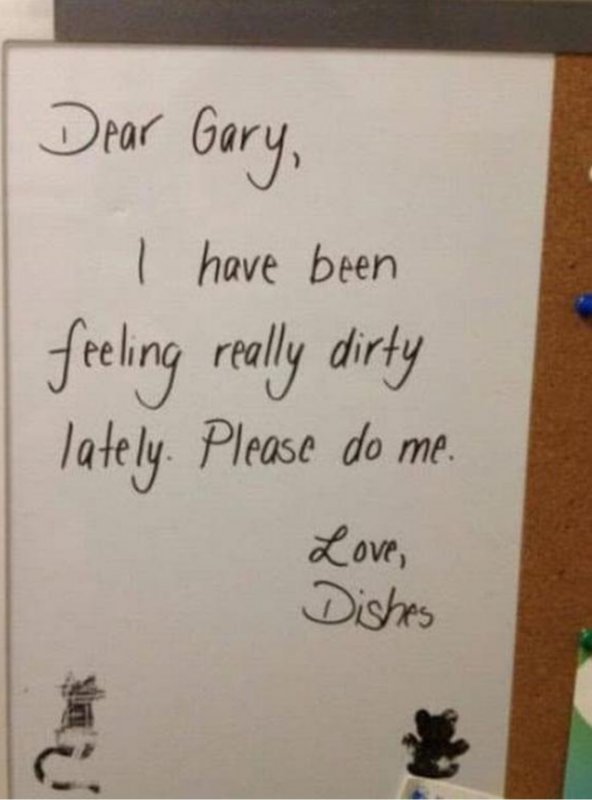 Dear Gary,
I have been
feeling really dirty
lately. Please do me.
Love,
Dishes